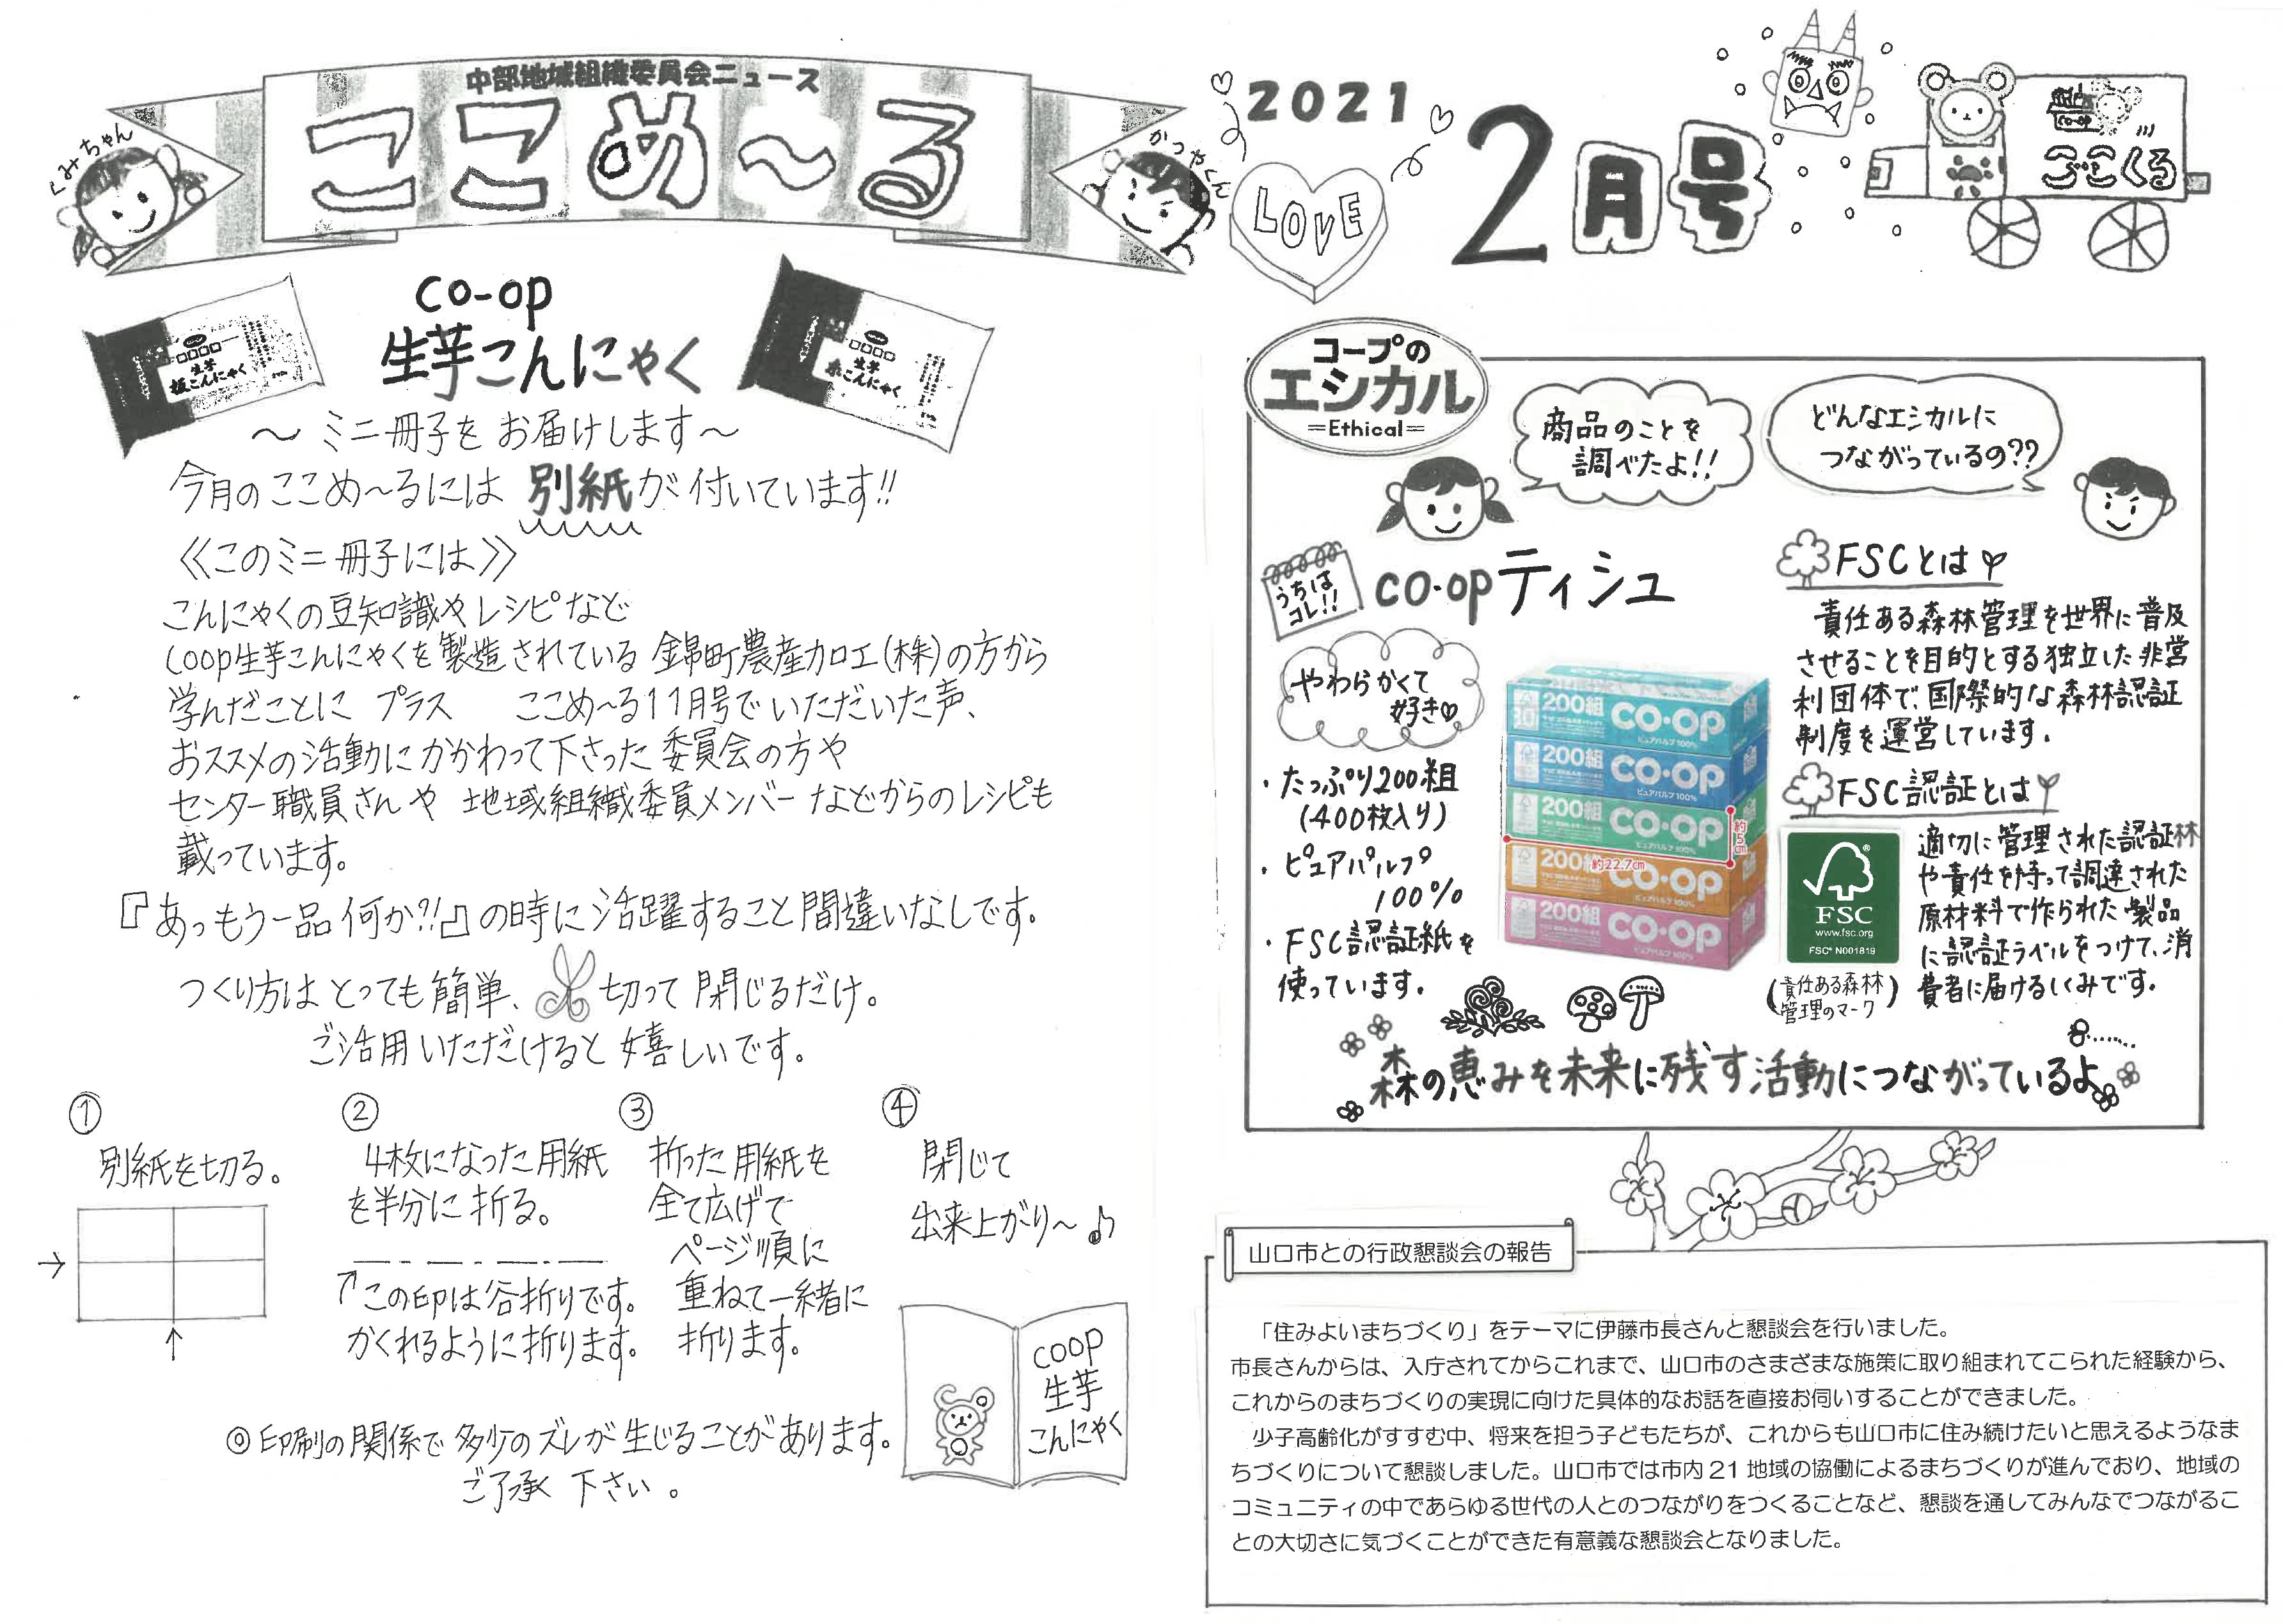 中部地域組織委員会ニュース
ここめ〜る
くみちゃん
かつやくん
2021
2月号
LOVE
ここくる
co-op
生芋こんにゃく
生芋
板こんにゃく
生芋
糸こんにゃく
〜 ミニ冊子を お届けします〜
今月のここめ〜るには 別紙が付いています!!
《このミニ冊子には》
こんにゃくの豆知識やレシピなど
coop生芋こんにゃくを製造されている 錦町農産加工(株)の方から
学んだことに プラス ここめ〜る11月号でいただいた声、
おススメの活動にかかわって下さった委員会の方や
センター職員さんや 地域組織委員メンバーなどからのレシピも
載っています。
『あっもう一品何か?!』の時に活躍すること間違いなしです。
つくり方はとっても簡単、切って閉じるだけ。
ご活用いただけると嬉しいです。
①
別紙を切る。
②
4枚になった用紙
を半分に折る。
↑この印は谷折りです。
かくれるように折ります。
③
折った用紙を
全て広げて
ページ順に
重ねて一緒に
折ります。
④
閉じて
出来上がり〜♪
coop
生芋
こんにゃく
◎印刷の関係で多少のズレが生じることがあります。
ご了承 下さい。
コープの
エシカル
=Ethical=
商品のことを
調べたよ!!
どんなエシカルに
つながっているの??
うちは
コレ!!
co・opティシュ
やわらかくて
好き♡
・たっぷり200組
(400枚入り)
・ピュアパルプ
100%
・FSC認証紙を
使っています。
200組 CO・OP
ピュアパルプ100%
200組 CO・OP
ピュアパルプ100%
200組 CO・OP
ピュアパルプ100%
200組 CO・OP
ピュアパルプ100%
200組 CO・OP
ピュアパルプ100%
約5cm
約22.7cm
FSCとは
責任ある森林管理を世界に普及
させることを目的とする独立した非営
利団体で、国際的な森林認証
制度を運営しています。
FSC認証とは
適切に管理された認証林
や責任を持って調達された
原材料で作られた製品
に認証ラベルをつけて、消
費者に届けるしくみです。
FSC
www.fsc.org
FSC® N001819
(責任ある森林
管理のマーク)
森の恵みを未来に残す活動につながっているよ
山口市との行政懇談会の報告
「住みよいまちづくり」をテーマに伊藤市長さんと懇談会を行いました。
市長さんからは、入庁されてからこれまで、山口市のさまざまな施策に取り組まれてこられた経験から、
これからのまちづくりの実現に向けた具体的なお話を直接お伺いすることができました。
少子高齢化がすすむ中、将来を担う子どもたちが、これからも山口市に住み続けたいと思えるようなま
ちづくりについて懇談しました。山口市では市内 21 地域の協働によるまちづくりが進んでおり、地域の
コミュニティの中であらゆる世代の人とのつながりをつくることなど、懇談を通してみんなでつながるこ
との大切さに気づくことができた有意義な懇談会となりました。